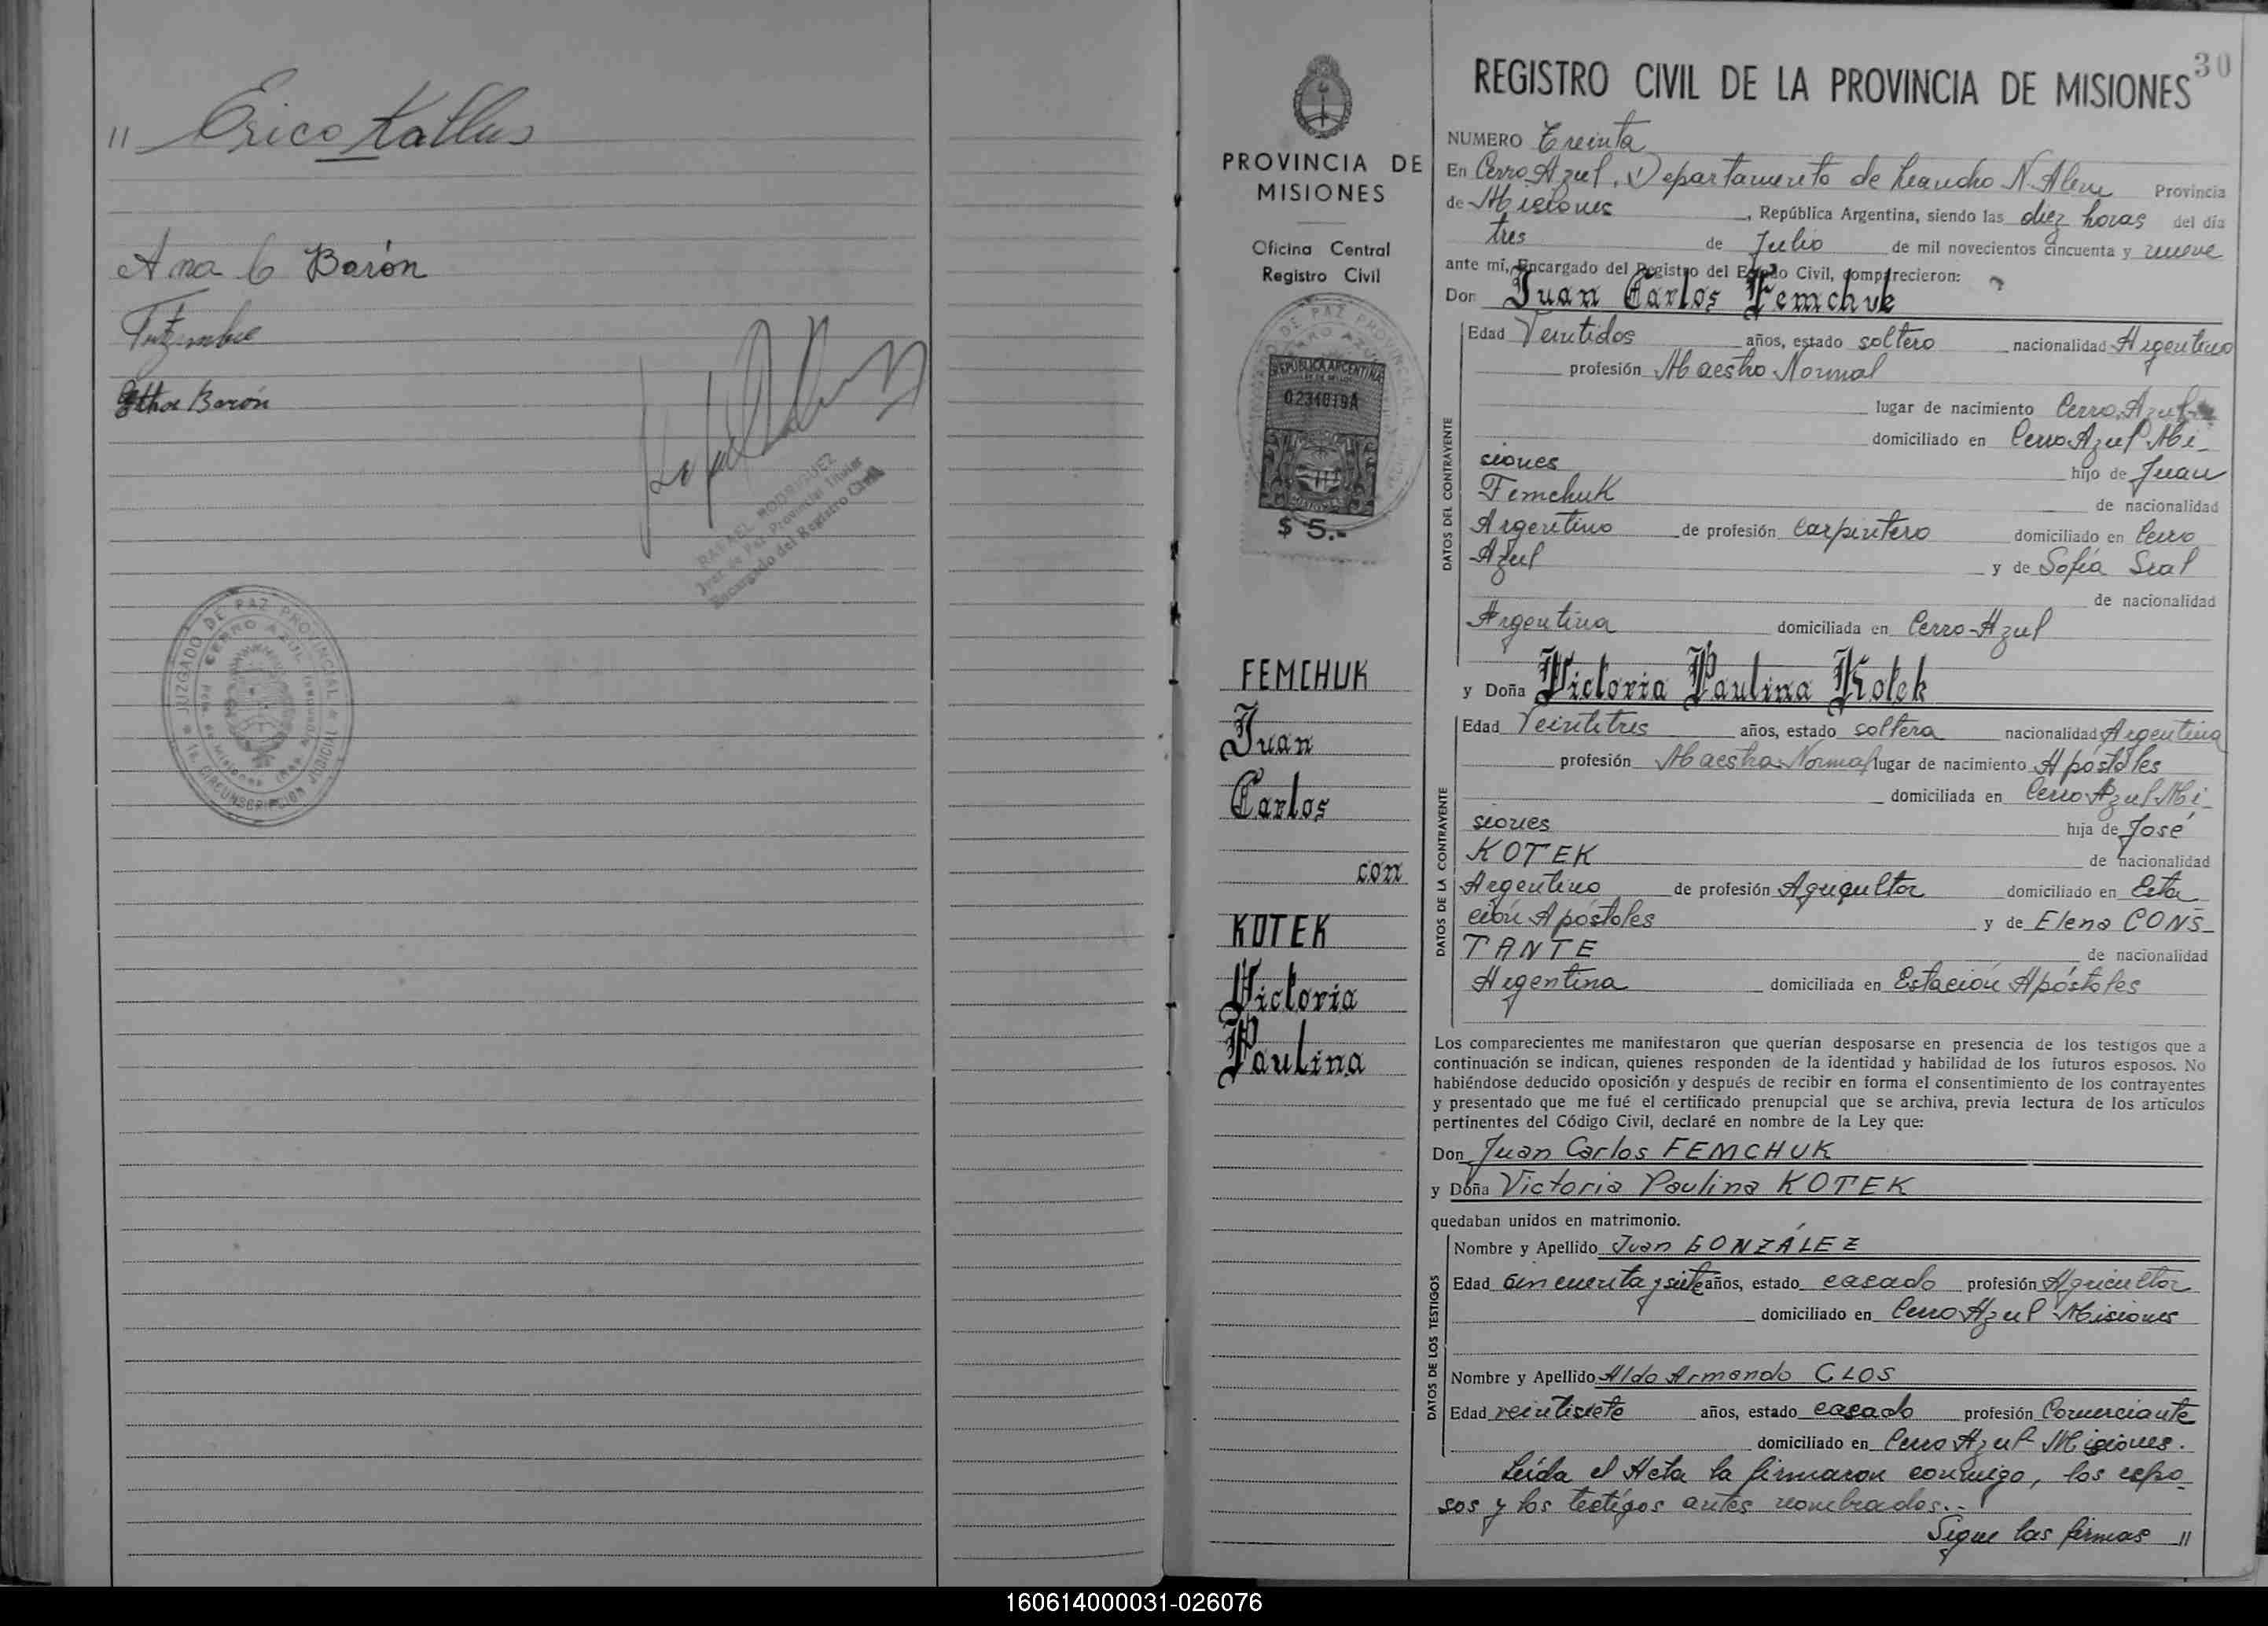 " Erico Kallus
Ana C Barón
Barón
RAFAEL RODRIGUEZ
Juez de Paz Provincial Titular
Encargado del Registro Civil
JUZGADO DE PAZ PROVINCIAL
CERRO AZUL
1a. CIRCUNSCRIPCION JUDICIAL
PROVINCIA DE
MISIONES
Oficina Central
Registro Civil
REPUBLICA ARGENTINA
0231019A
$ 5.-
FEMCHUK
Juan
Carlos
con
KOTEK
Victoria
Paulina
30
REGISTRO CIVIL DE LA PROVINCIA DE MISIONES
NUMERO Treinta
En Cerro Azul, Departamento de Leandro N. Alem Provincia
de Misiones, República Argentina, siendo las diez horas del día
tres de Julio de mil novecientos cincuenta y nueve
ante mí, Encargado del Registro del Estado Civil, comparecieron:
Don Juan Carlos Femchuk
DATOS DEL CONTRAYENTE
Edad Veintidos años, estado soltero nacionalidad Argentino
profesión Maestro Normal
lugar de nacimiento Cerro Azul
domiciliado en Cerro Azul Mi-
siones hijo de Juan
Femchuk de nacionalidad
Argentino de profesión carpintero domiciliado en Cerro
Azul y de Sofía Sial
de nacionalidad
Argentina domiciliada en Cerro-Azul
y Doña Victoria Paulina Kotek
DATOS DE LA CONTRAYENTE
Edad Veintitres años, estado soltera nacionalidad Argentina
profesión Maestra Normal lugar de nacimiento Apóstoles
domiciliada en Cerro Azul Mi-
siones hija de José
KOTEK de nacionalidad
Argentino de profesión Agricultor domiciliado en Esta-
ción Apóstoles y de Elena CONS-
TANTE de nacionalidad
Argentina domiciliada en Estación Apóstoles
Los comparecientes me manifestaron que querían desposarse en presencia de los testigos que a
continuación se indican, quienes responden de la identidad y habilidad de los futuros esposos. No
habiéndose deducido oposición y después de recibir en forma el consentimiento de los contrayentes
y presentado que me fué el certificado prenupcial que se archiva, previa lectura de los artículos
pertinentes del Código Civil, declaré en nombre de la Ley que:
Don Juan Carlos FEMCHUK
y Doña Victoria Paulina KOTEK
quedaban unidos en matrimonio.
DATOS DE LOS TESTIGOS
Nombre y Apellido Juan GONZÁLEZ
Edad cincuenta y siete años, estado casado profesión Agricultor
domiciliado en Cerro Azul Misiones
Nombre y Apellido Aldo Armando CLOS
Edad veintisiete años, estado casado profesión Comerciante
domiciliado en Cerro Azul Misiones.
Leída el Acta la firmaron conmigo, los espo-
sos y los testigos antes nombrados.-
Sigue las firmas "
160614000031-026076